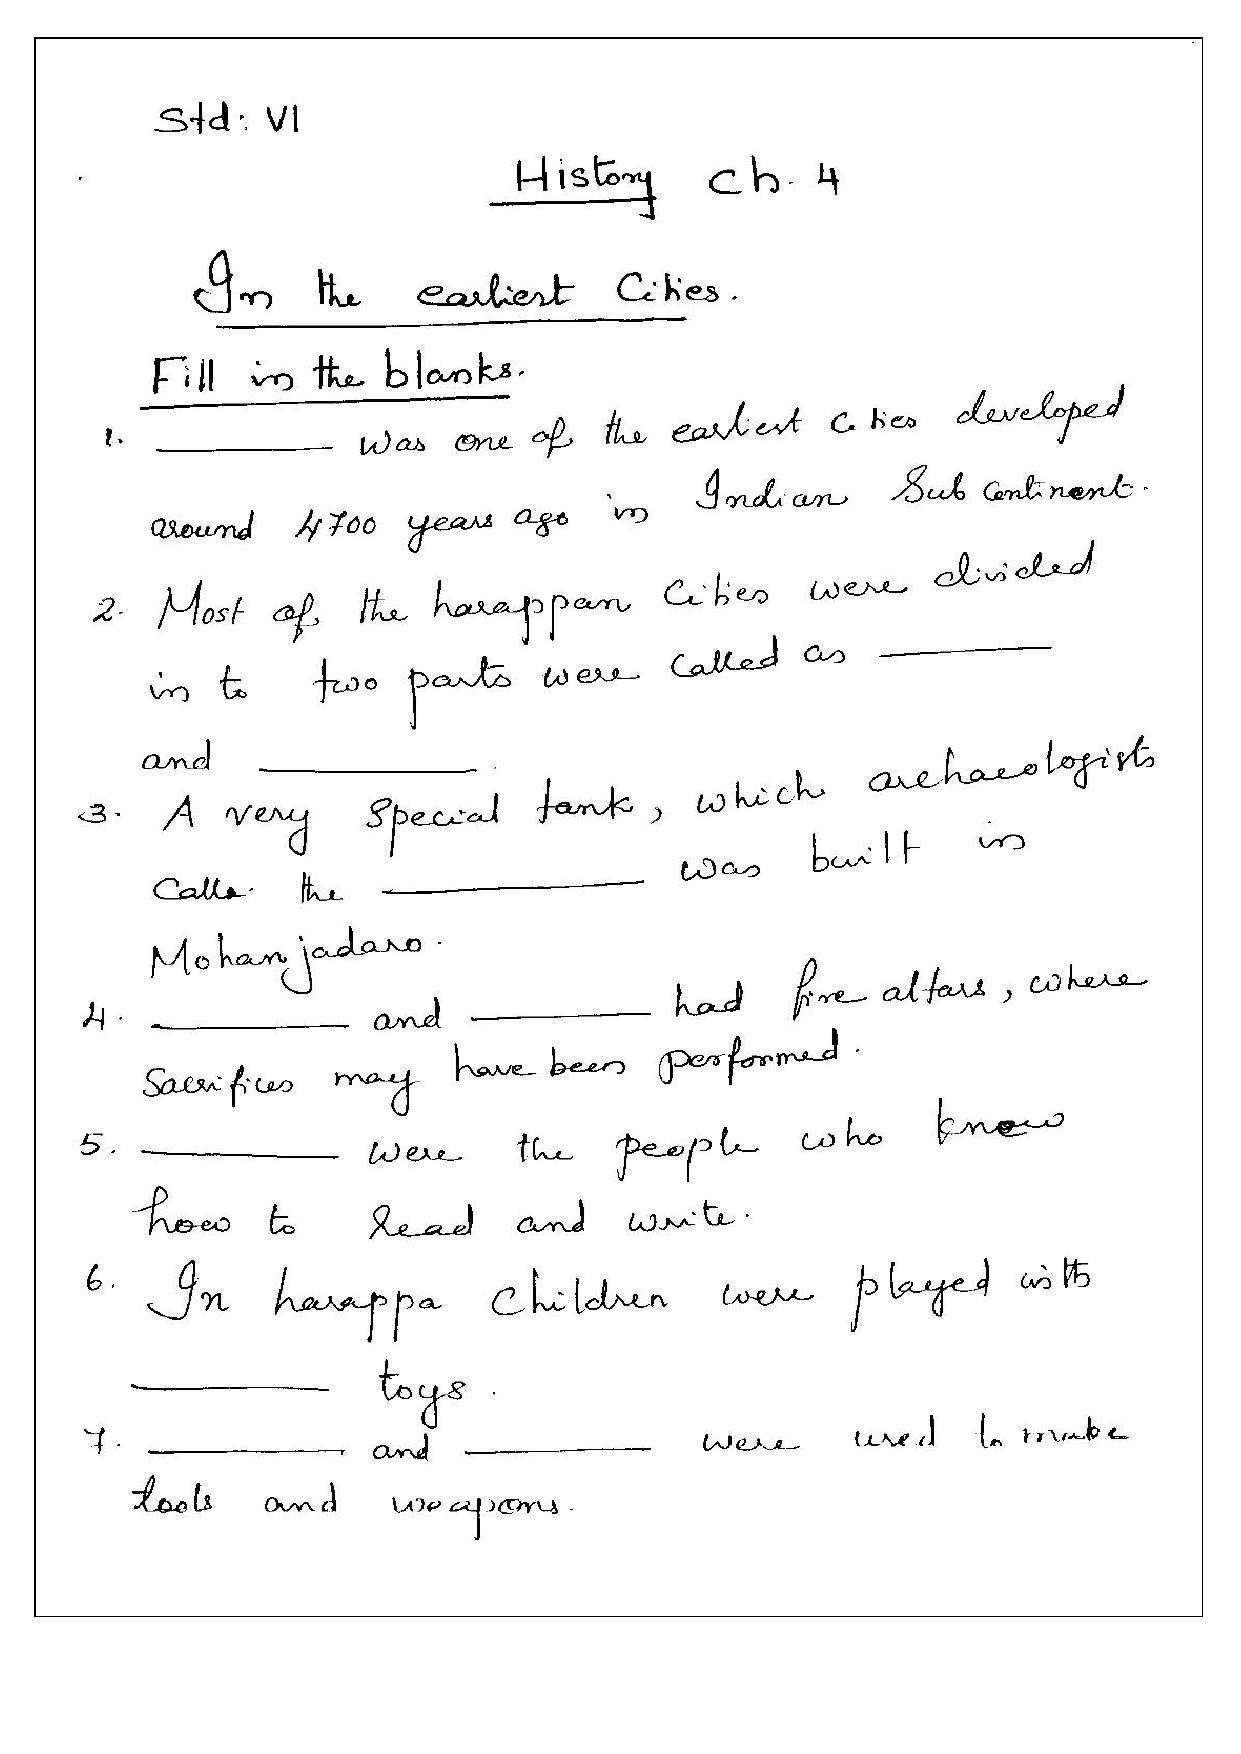 Std: VI
History Ch. 4
In the earliest Cities.
Fill in the blanks.
1. ________ was one of the earliest cities developed
around 4700 years ago in Indian Subcontinent.
2. Most of the harappan Cities were divided
in to two parts were called as ________
and ________.
3. A very special tank, which archaeologists
Calls the ________ was built in
Mohanjadaro.
4. ________ and ________ had fire altars, where
Sacrifices may have been performed.
5. ________ were the people who know
how to read and write.
6. In harappa children were played with
________ toys.
7. ________ and ________ were used to make
tools and weapons.